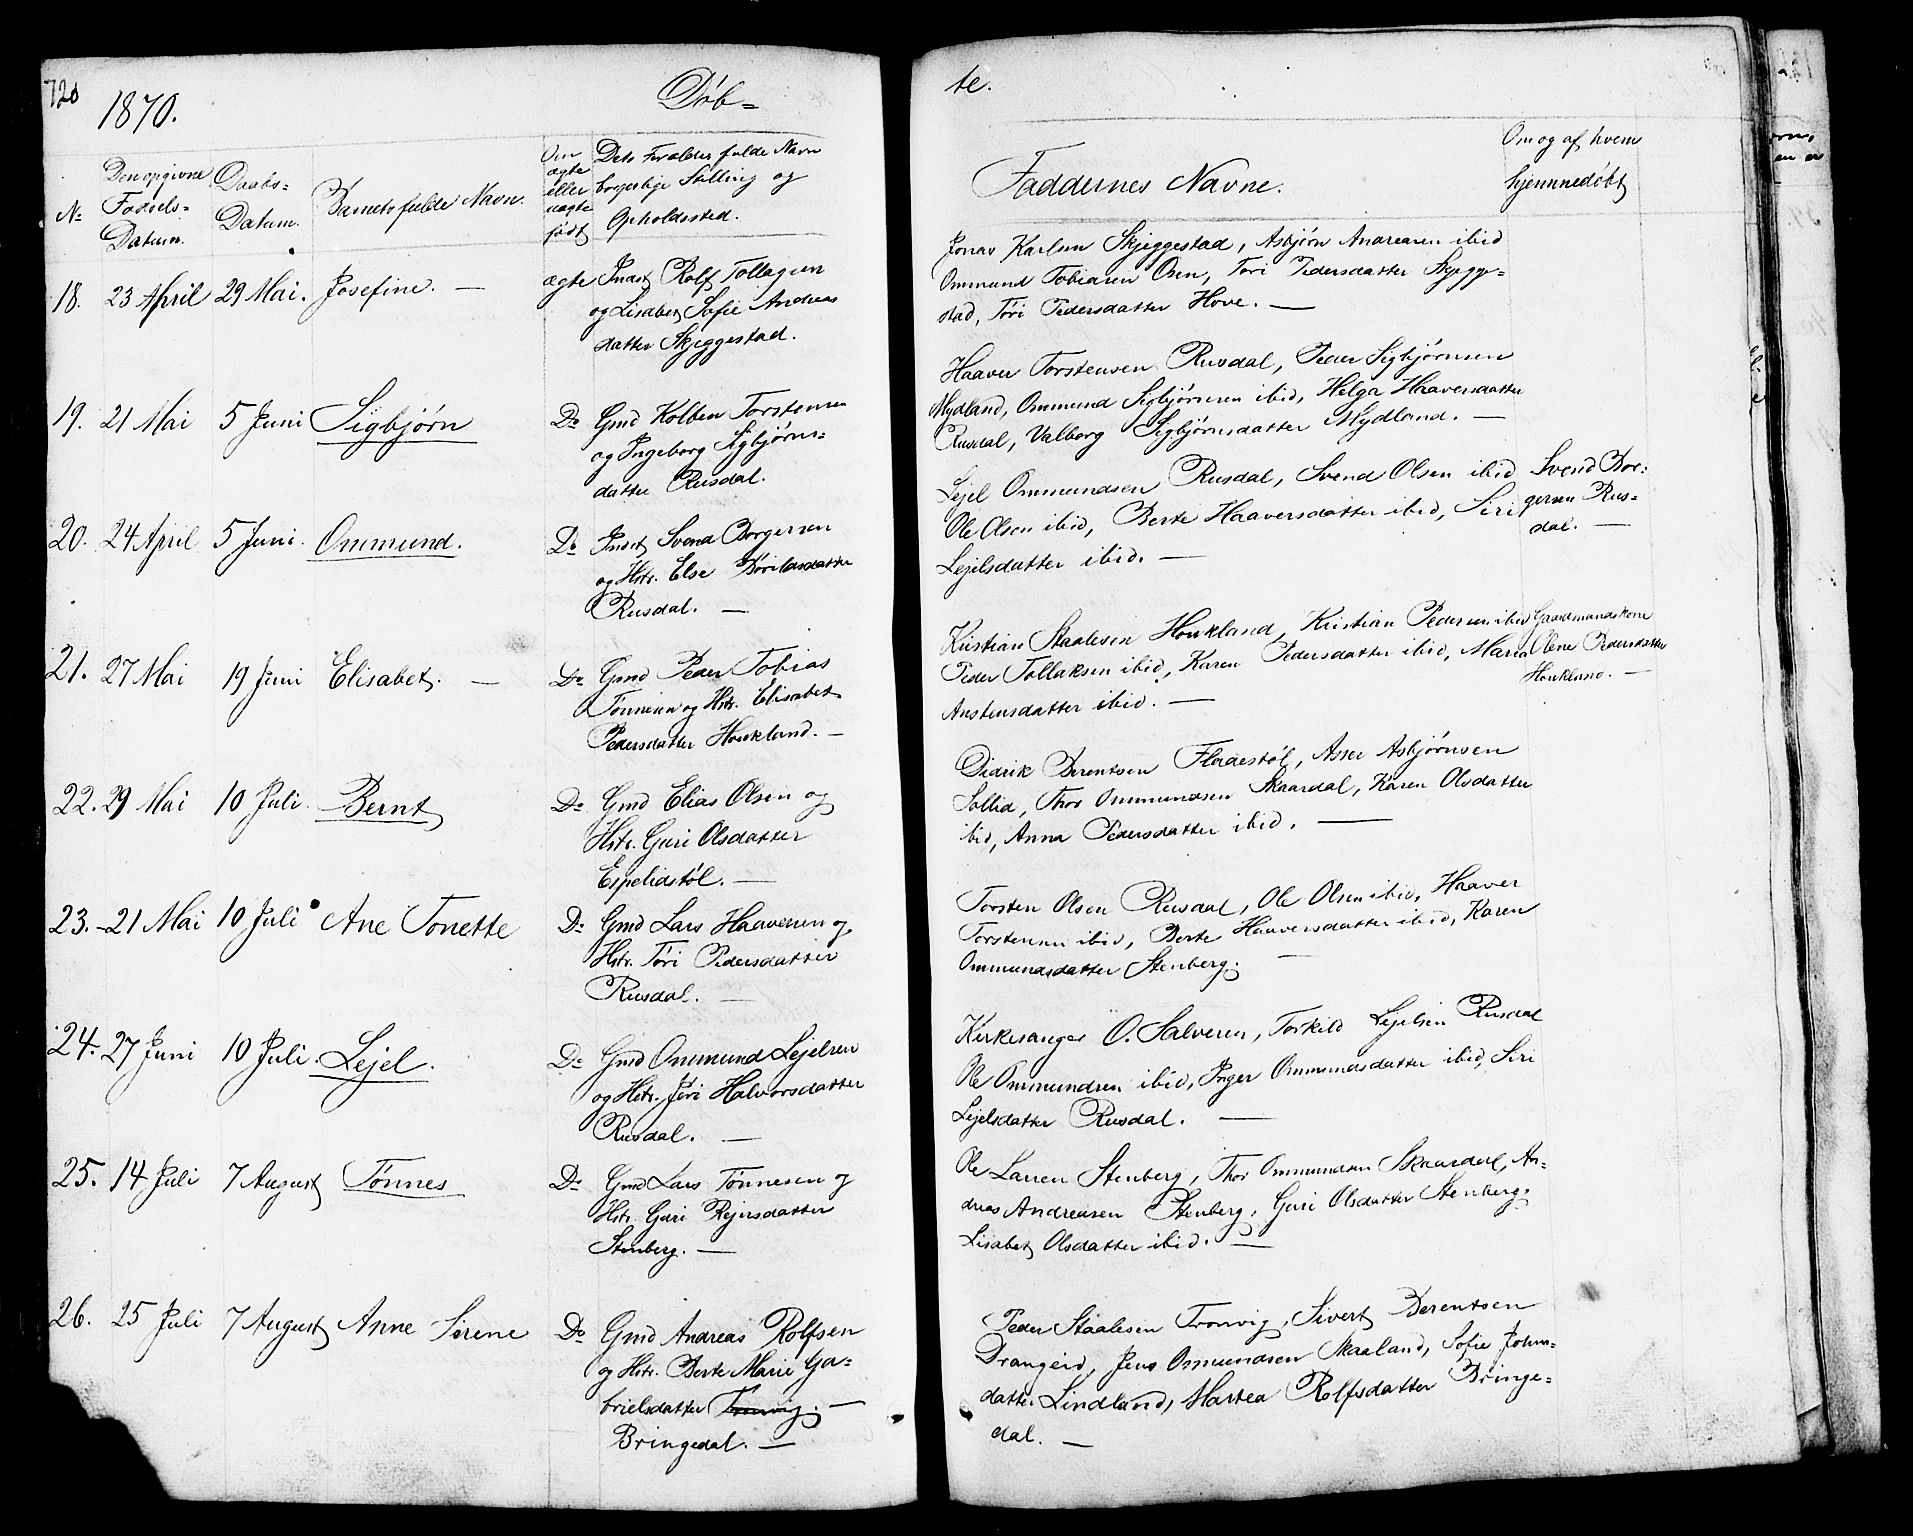 1870.
Døb=
te.
Nº
Den opgivne
Fødsels=
Datum.
Daabs=
Datum.
Barnets fulde Navn.
Om
ægte
eller
uægte
født
Dets Forældres fulde Navn
borgerlige Stilling og
Opholdssted.
Faddernes Navne.
Om og af hvem
hjemmedøbt
18. 23 April 29 Mai. Josefine. —
ægte Indst Rolf Tollagsen
og Lisabet Sofie Andreas
datter Skjeggestad.
Jonas Karlsen Skjeggestad, Asbjørn Andreasen ibid
Ommund Tobiasen Osen, Tori Pedersdatter Skjegge=
stad, Tori Pedersdatter Hove. —
19. 21 Mai 5 Juni Sigbjørn
Do Gmd Kolben Torstensen
og Ingeborg Sigbjørns=
datter Rusdal.
Haaver Torstensen Rusdal, Peder Sigbjørnsen
Mydland, Ommund Sigbjørnsen ibid, Helga Haaversdatter
Rusdal, Valborg Sigbjørnsdatter Mydland. —
20. 24 April 5 Juni. Ommund.
Do Indst Svend Borgersen
og Hstr. Else
Rusdal. —
Lejel Ommundsen Rusdal, Svend Olsen ibid
Ole Olsen ibid, Berte Haaversdatter ibid, Siri
Lejelsdatter ibid. —
Svend Bor=
gersen Rus=
dal. —
21. 27 Mai 19 Juni Elisabet. —
Do Gmd Peder Tobias
Tønnesen og Hstr. Elisabet
Pedersdatter Houkland. —
Kristian Staalesen Houkland, Kristian Pedersen ibid
Peder Tollaksen ibid, Karen Pedersdatter ibid, Maria
Anstensdatter ibid. —
Gaardmandskone
Olene Pedersdatter
Houkland. —
22. 29 Mai 10 Juli. Bernt
Do Gmd Elias Olsen og
Hstr. Guri Olsdatter
Espelidstøl. —
Didrik Berentsen Fladestøl, Asser Asbjørnsen
Sollid, Thor Ommundsen Skaardal, Karen Olsdatter
ibid, Anna Pedersdatter ibid. —
23. - 21 Mai 10 Juli Ane Tonette
Do Gmd Lars Haaversen og
Hstr. Tori Pedersdatter
Rusdal. —
Torsten Olsen Rusdal, Ole Olsen ibid, Haaver
Torstensen ibid, Berte Haaversdatter ibid, Karen
Ommundsdatter Stenberg. —
24. 27 Juni 10 Juli. Lejel.
Do Gmd Ommund Lejelsen
og Hstr. Jøri Halvorsdatter
Rusdal. —
Kirkesanger O. Salvesen, Torkild Lejelsen Rusdal
Ole Ommundsen ibid, Inger Ommundsdatter ibid, Siri
Lejelsdatter Rusdal. —
25. 14 Juli 7 August Tønnes
Do Gmd Lars Tønnesen og
Hstr. Guri Rejersdatter
Stenberg. —
Ole Larsen Stenberg, Thor Ommundsen Skaardal, An=
dreas Andreasen Stenberg, Guri Olsdatter Stenberg,
Lisabet Olsdatter ibid. —
26. 25 Juli 7 August Anne Serene
Do Gmd Andreas Rolfsen
og Hstr. Berte Marie Ga=
brielsdatter Tronvig. —
Bringedal. —
Peder Staalesen Tronvig, Sivert Berentsen
Drangeid, Jens Osmundsen Skaaland, Sofie Johns=
datter Lindland, Martea Rolfsdatter Bringe=
dal. —